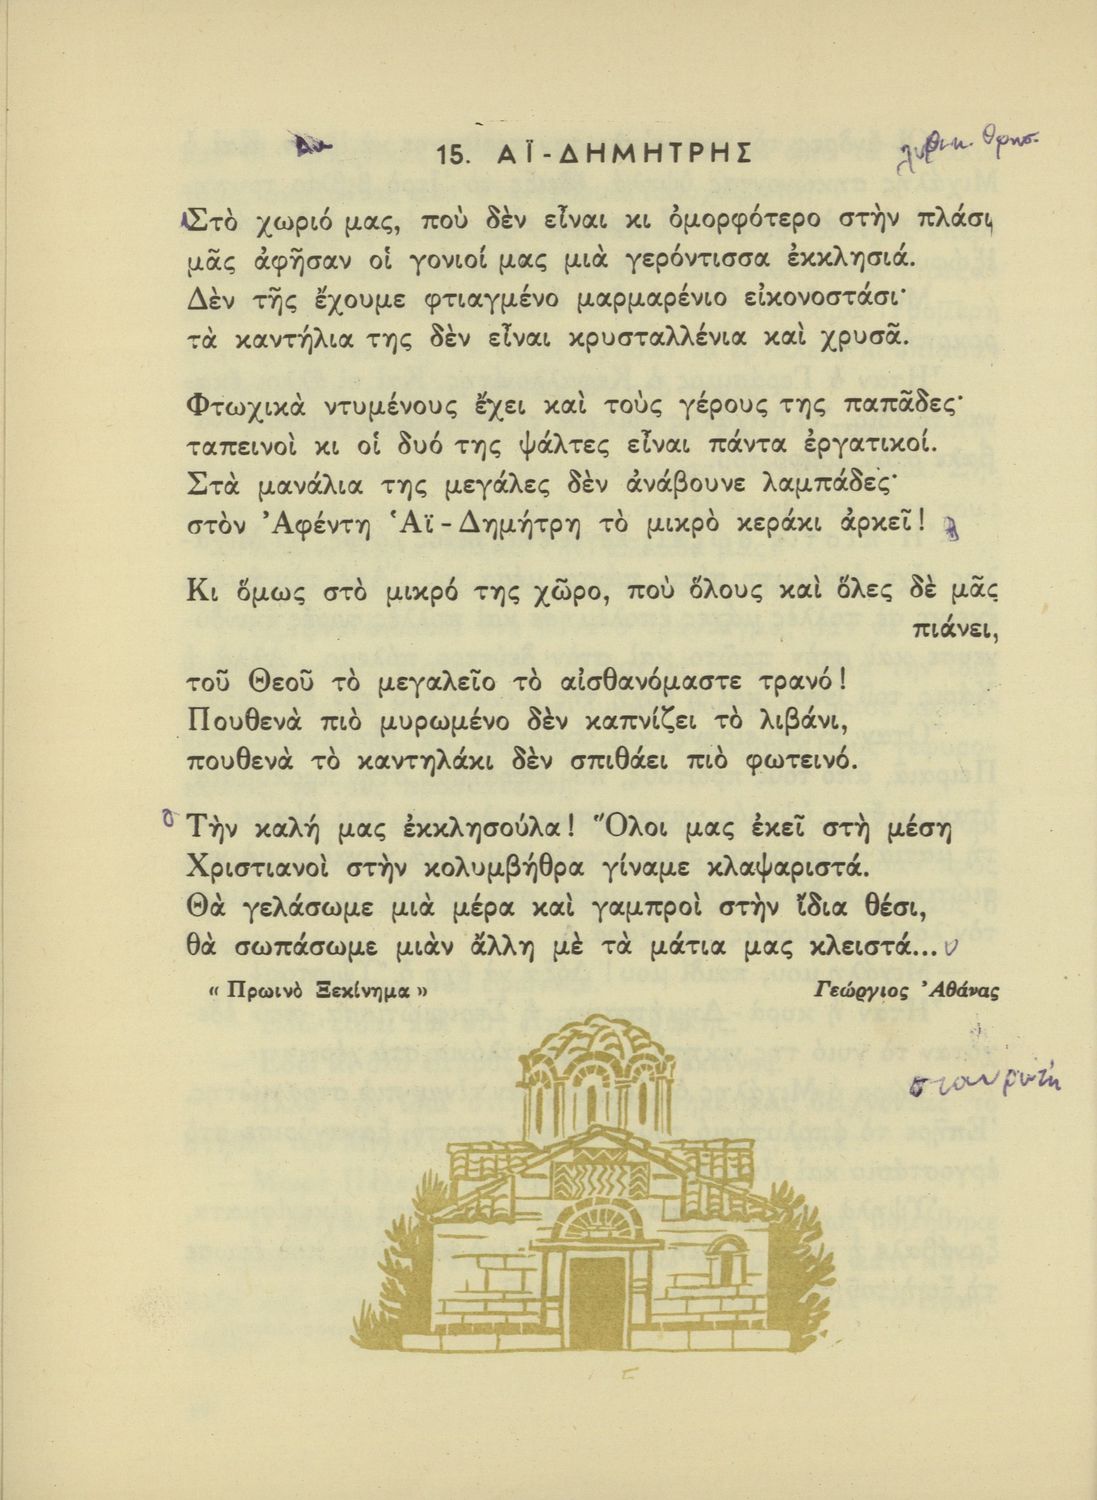 15. ΑΪ-ΔΗΜΗΤΡΗΣ
λυρικ. θρησ.
Στὸ χωριό μας, ποὺ δὲν εἶναι κι ὀμορφότερο στὴν πλάσι,
μᾶς ἀφῆσαν οἱ γονιοί μας μιὰ γερόντισσα ἐκκλησιά.
Δὲν τῆς ἔχουμε φτιαγμένο μαρμαρένιο εἰκονοστάσι·
τὰ καντήλια της δὲν εἶναι κρυσταλλένια καὶ χρυσᾶ.
Φτωχικὰ ντυμένους ἔχει καὶ τοὺς γέρους της παπᾶδες·
ταπεινοὶ κι οἱ δυό της ψάλτες εἶναι πάντα ἐργατικοί.
Στὰ μανάλια της μεγάλες δὲν ἀνάβουνε λαμπάδες·
στὸν ᾿Αφέντη ῾Αϊ-Δημήτρη τὸ μικρὸ κεράκι ἀρκεῖ!
Κι ὅμως στὸ μικρό της χῶρο, ποὺ ὅλους καὶ ὅλες δὲ μᾶς
πιάνει,
τοῦ Θεοῦ τὸ μεγαλεῖο τὸ αἰσθανόμαστε τρανό!
Πουθενὰ πιὸ μυρωμένο δὲν καπνίζει τὸ λιβάνι,
πουθενὰ τὸ καντηλάκι δὲν σπιθάει πιὸ φωτεινό.
Τὴν καλή μας ἐκκλησούλα! ῞Ολοι μας ἐκεῖ στὴ μέση
Χριστιανοὶ στὴν κολυμβήθρα γίναμε κλαψαριστά.
Θὰ γελάσωμε μιὰ μέρα καὶ γαμπροὶ στὴν ἴδια θέσι,
θὰ σωπάσωμε μιὰν ἄλλη μὲ τὰ μάτια μας κλειστά...
« Πρωινὸ Ξεκίνημα »
Γεώργιος ᾿Αθάνας
σταυρωτή